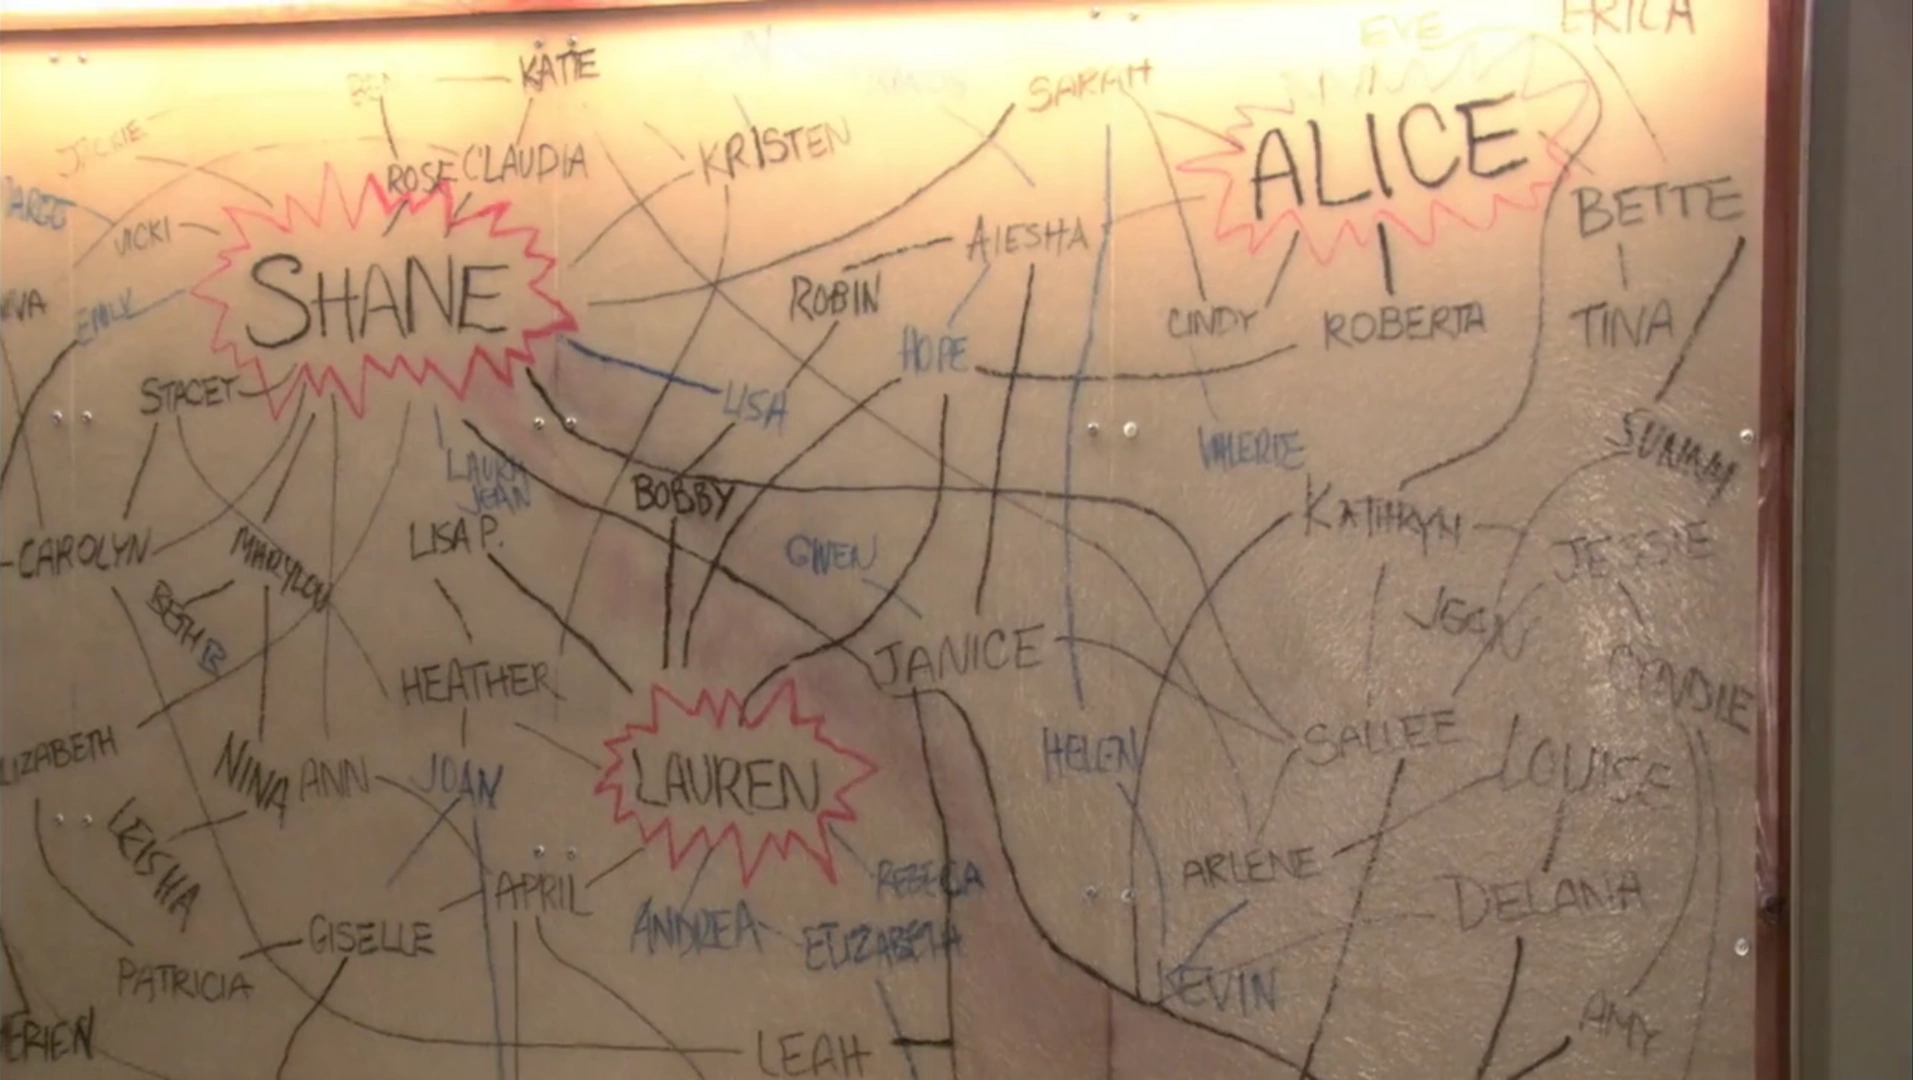 ERICA
EVE
KATIE
SARAH
ALICE
JACKIE
ROSE
CLAUDIA
KRISTEN
BETTE
VICKI
AIESHA
SHANE
ROBIN
EMILY
CINDY
ROBERTA
TINA
HOPE
STACEY
LISA
VALERIE
SUNNY
LAURA
JEAN
BOBBY
KATHRYN
LISA P.
CAROLYN
MARYLOU
GWEN
JESSIE
BETH B
JEAN
JANICE
HEATHER
CYNDIE
SALLEE
HELEN
LIZABETH
NINA
ANN
JOAN
LAUREN
LOUISE
LEISHA
APRIL
REBECA
ARLENE
DELANA
GISELLE
ANDREA
ELIZABETH
PATRICIA
KEVIN
ERIEN
LEAH
AMY